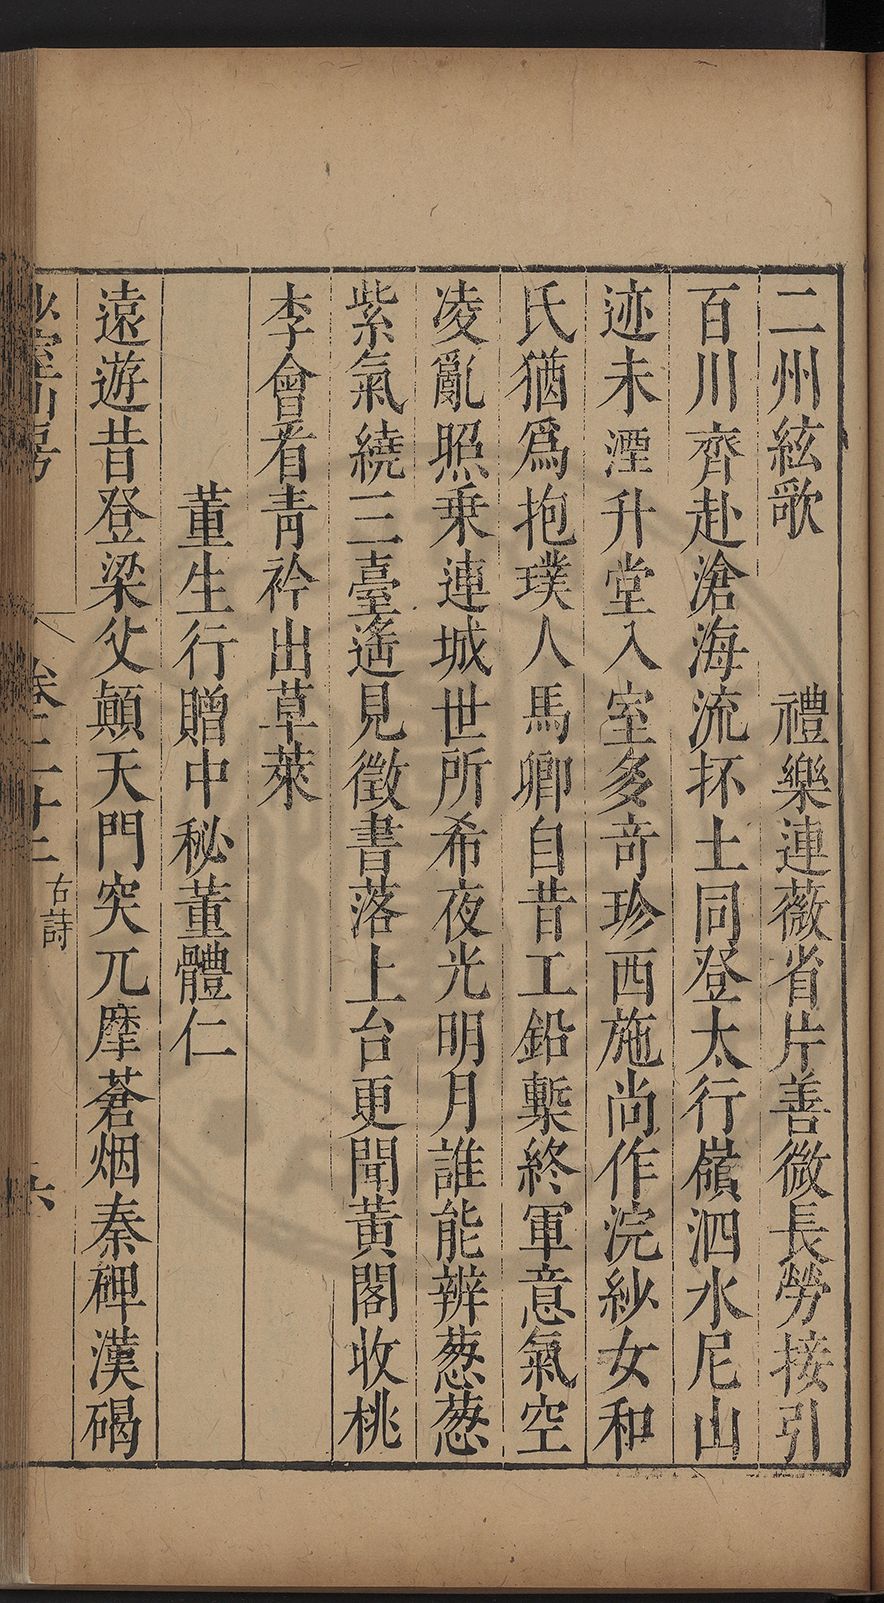 二州絃歌　　禮樂連薇省片善微長勞接引
百川齊赴滄海流抔土同登太行嶺泗水尼山
迹未湮升堂入室多奇珍西施尚作浣紗女和
氏猶爲抱璞人馬卿自昔工鉛槧終軍意氣空
凌亂照乗連城世所希夜光明月誰能辨葱葱
紫氣繞三臺遙見徵書落上台更聞黃閣收桃
李會看靑衿出草萊
董生行贈中秘董體仁
遠遊昔登梁父顛天門突兀摩蒼烟秦碑漢碣
少室山房　卷二十二　古詩　六